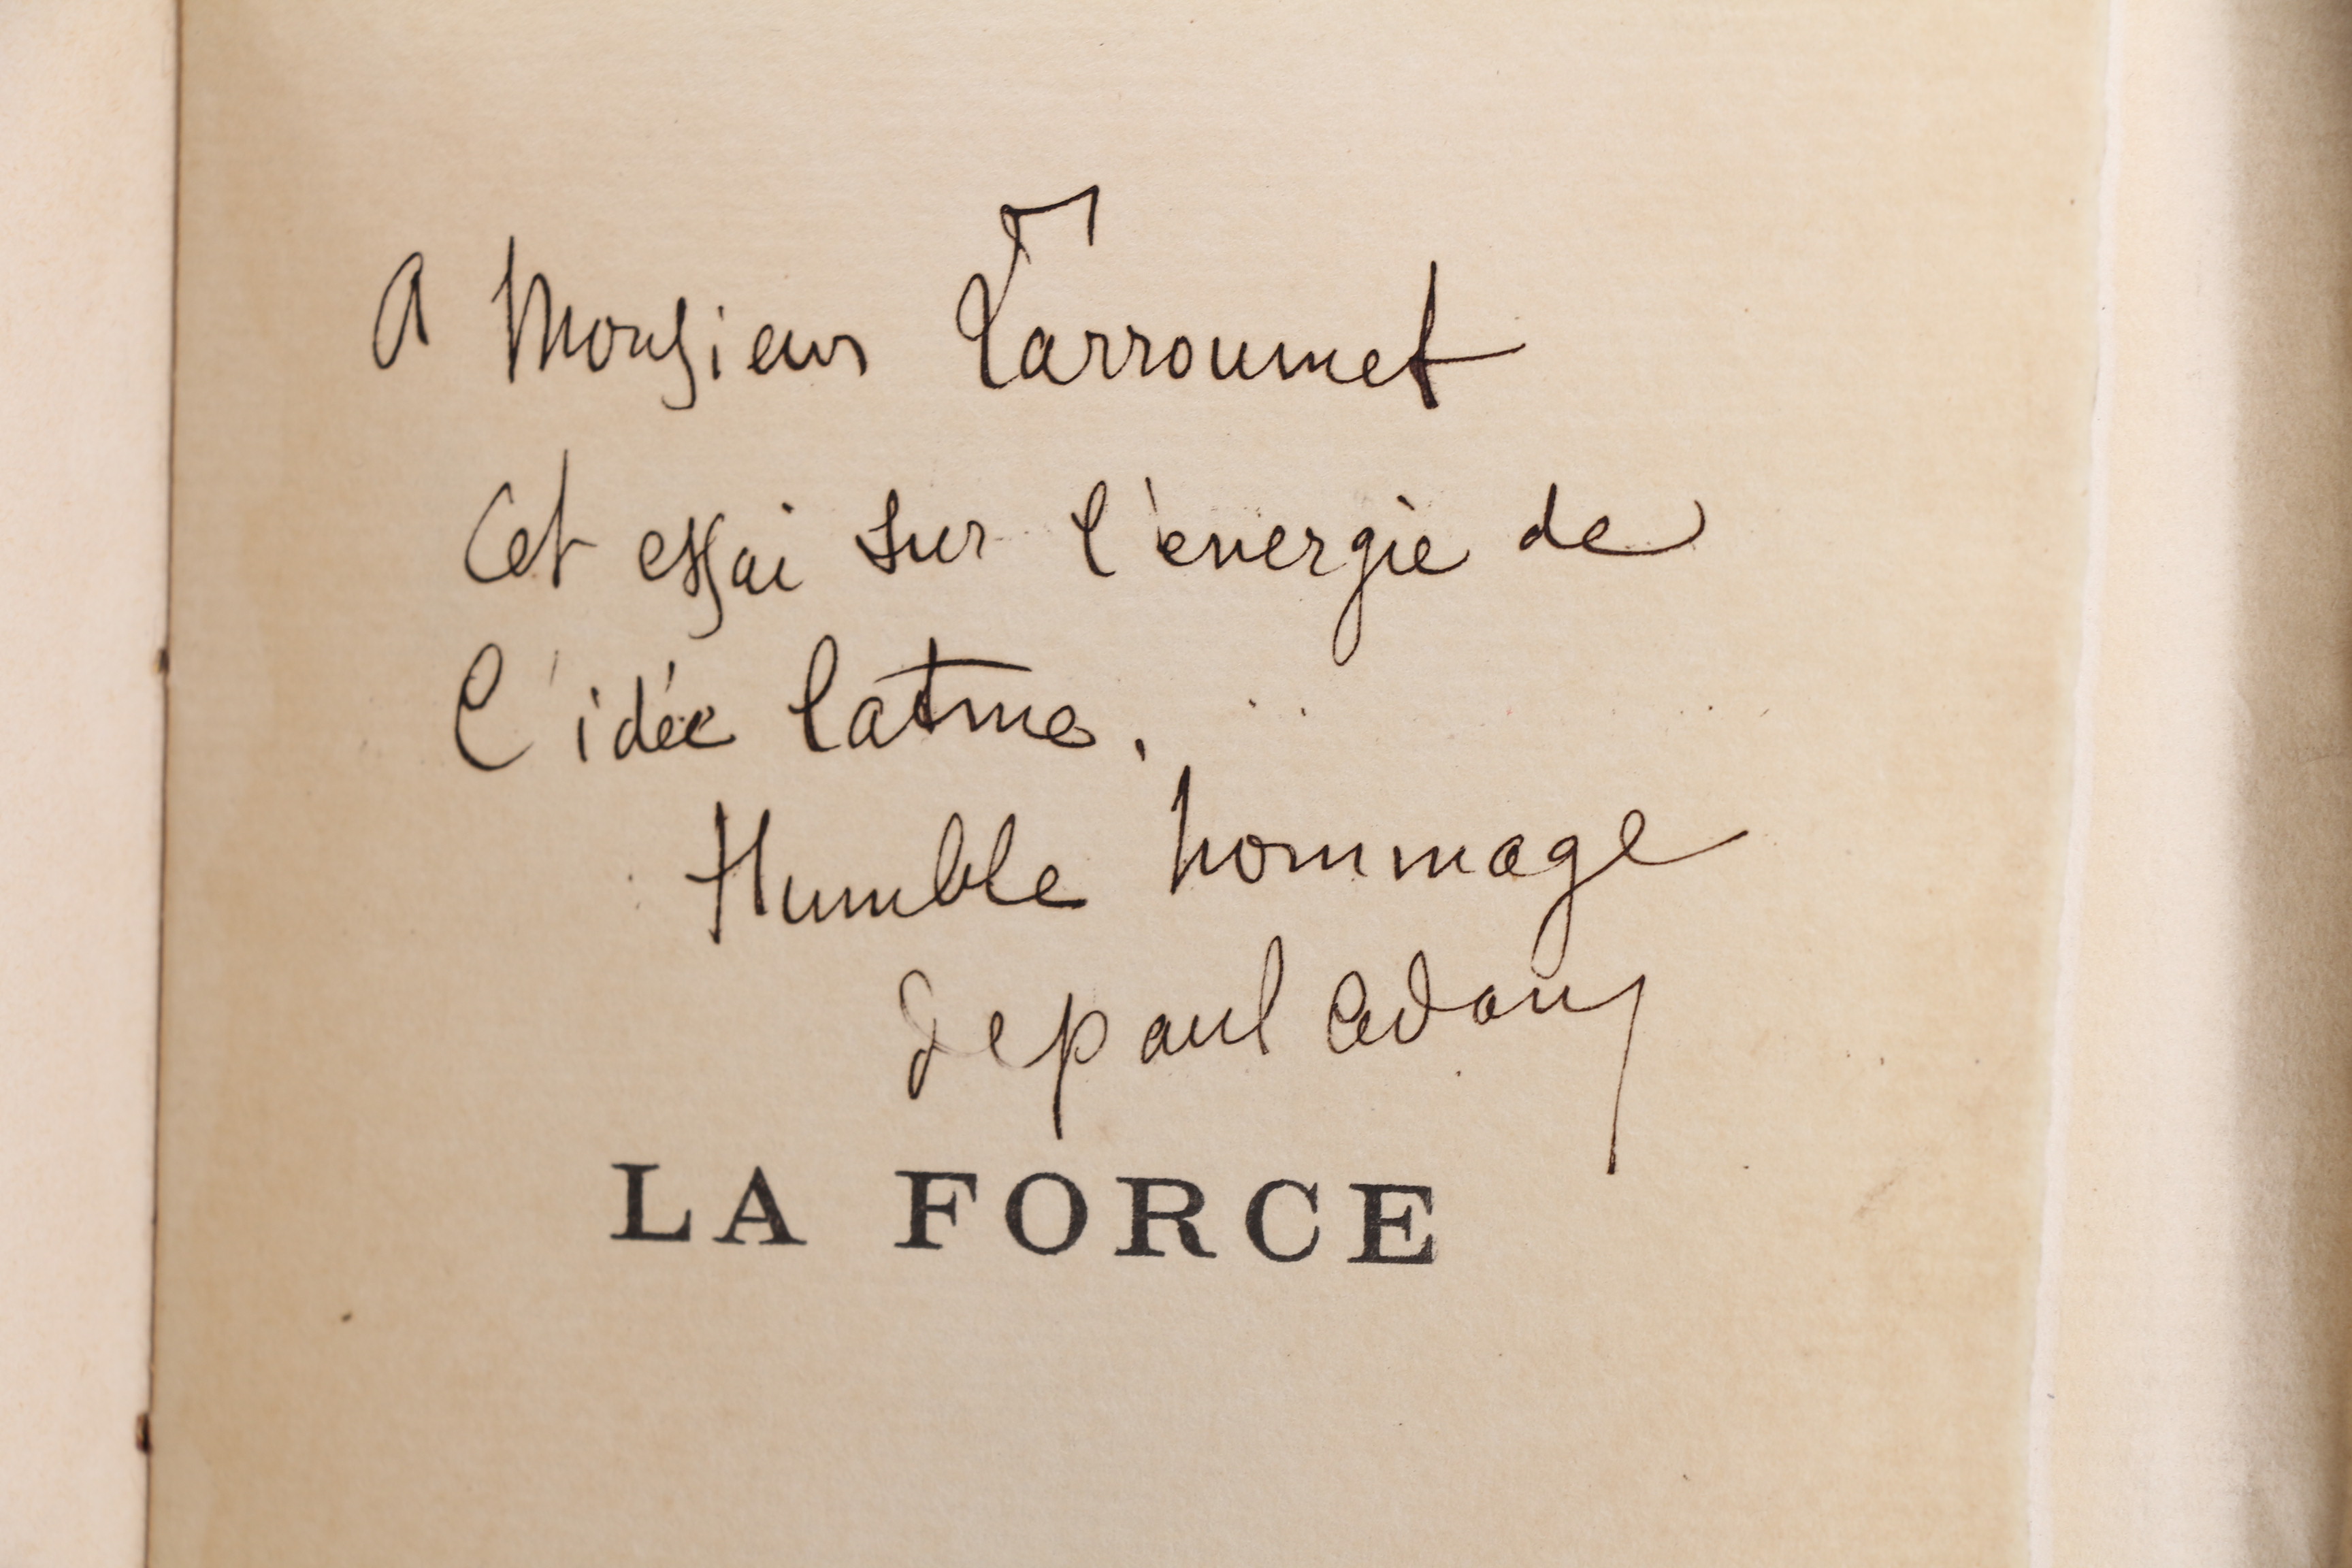 A Monsieur Larroumet
Cet essai sur l'énergie de
l'idée latine.
Humble hommage
de paul adam
LA FORCE